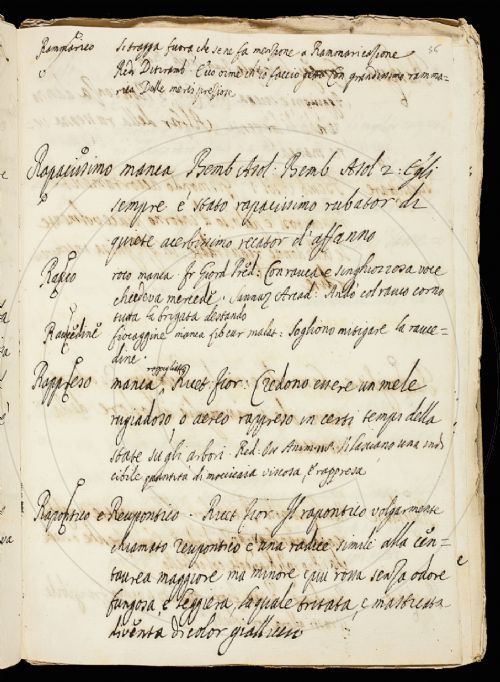 Rammarico si trappa fuora che se ne fa menzione a Rammaricazione
Red. Ditiramb. E io oime ch'io faccio gesto con grandissimo ramma-
rico Delle merci preziose
36
Rapacissimo manca Bemb Asol: Bemb Asol 2: Egli
sempre è stato rapacissimo rubator di
quiete acerbissimo recator d'affanno
Rauco roco manca fr Giord Pred: Con rauca e singhiozzosa voce
chiedeva mercede. Sannaz Arcad: Andò col rauco corno
tutta la brigata destando
Raucedine fiocaggine manca lib cur malat: Sogliono mitigare la rauce-
dine.
Rappreso manca rappigliato Ricet fior: Credono essere un mele
rugiadoso o aereo rappreso in certi tempi della
state su gli arbori. Red. Oss Anim: Vi lasciano una ind
cibile quantità di mucicaia viscosa, e rappresa
Rapontico e Reupontico. Ricet fior: Il rapontico volgarmente
chiamato reupontico è una radice simile alla cen-
taurea maggiore ma minore e più rossa senza odore
fungosa, e leggiera, la quale tritata, e masticata
diventa di color gialliccio